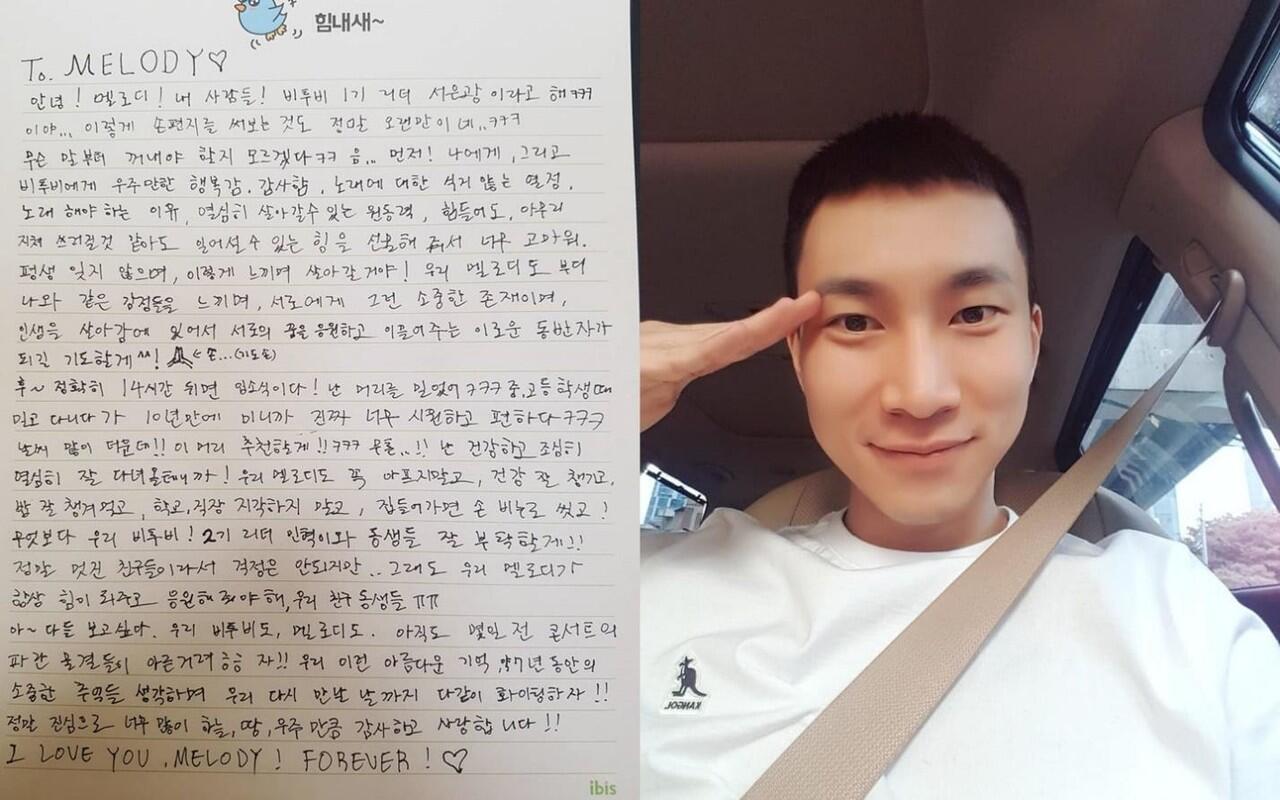 힘내새~
To. MELODY♡
안녕! 멜로디! 내 사람들! 비투비 1기 리더 서은광이라고 해ㅋㅋㅋ
이야... 이렇게 손편지를 써보는 것도 정말 오랜만이네..ㅋㅋㅋ
무슨 말부터 꺼내야 할지 모르겠다ㅋㅋ 음... 먼저! 나에게, 그리고
비투비에게 우주만한 행복감, 감사함, 노래에 대한 식지 않는 열정,
노래 해야 하는 이유, 열심히 살아갈수 있는 원동력, 힘들어도, 아무리
지쳐 쓰러질것 같아도 일어설 수 있는 힘을 선물해 줘서 너무 고마워.
평생 잊지 않으며, 이렇게 느끼며 살아갈거야! 우리 멜로디도 부디
나와 같은 감정들을 느끼며, 서로에게 그런 소중한 존재이며,
인생을 살아감에 있어서 서로의 꿈을 응원하고 이끌어주는 이로운 동반자가
되길 기도할게^^! ← 손...(기도손)
후~ 정확히 14시간 뒤면 입소식이다! 난 머리를 밀었어ㅋㅋㅋ 중,고등 학생때
밀고 다니다가 10년만에 미니까 진짜 너무 시원하고 편하다ㅋㅋㅋ
날씨 많이 더운데!! 이 머리 추천할게!! ㅋㅋㅋ 무튼..!! 난 건강하고 조심히
열심히 잘 다녀올테니까! 우리 멜로디도 꼭 아프지말고, 건강 잘 챙기고,
밥 잘 챙겨먹고, 학교,직장 지각하지 말고, 집들어가면 손 비누로 씻고!
무엇보다 우리 비투비! 2기 리더 민혁이와 동생들 잘 부탁할게!!
정말 멋진 친구들이라서 걱정은 안되지만.. 그래도 우리 멜로디가
항상 힘이 돼주고 응원해 줘야해, 우리 친구 동생들 ㅠㅠ
아~ 다들 보고싶다. 우리 비투비도, 멜로디도. 아직도 몇일 전 콘서트의
파란 물결들이 아른거려 흐흐 자!! 우리 이런 아름다운 기억, 약7년 동안의
소중한 추억들 생각하며 우리 다시 만날 날까지 다같이 화이팅하자!!
정말 진심으로 너무 많이 하늘, 땅, 우주 만큼 감사하고 사랑합니다!!
I LOVE YOU, MELODY! FOREVER! ♡
ibis
KANGOL